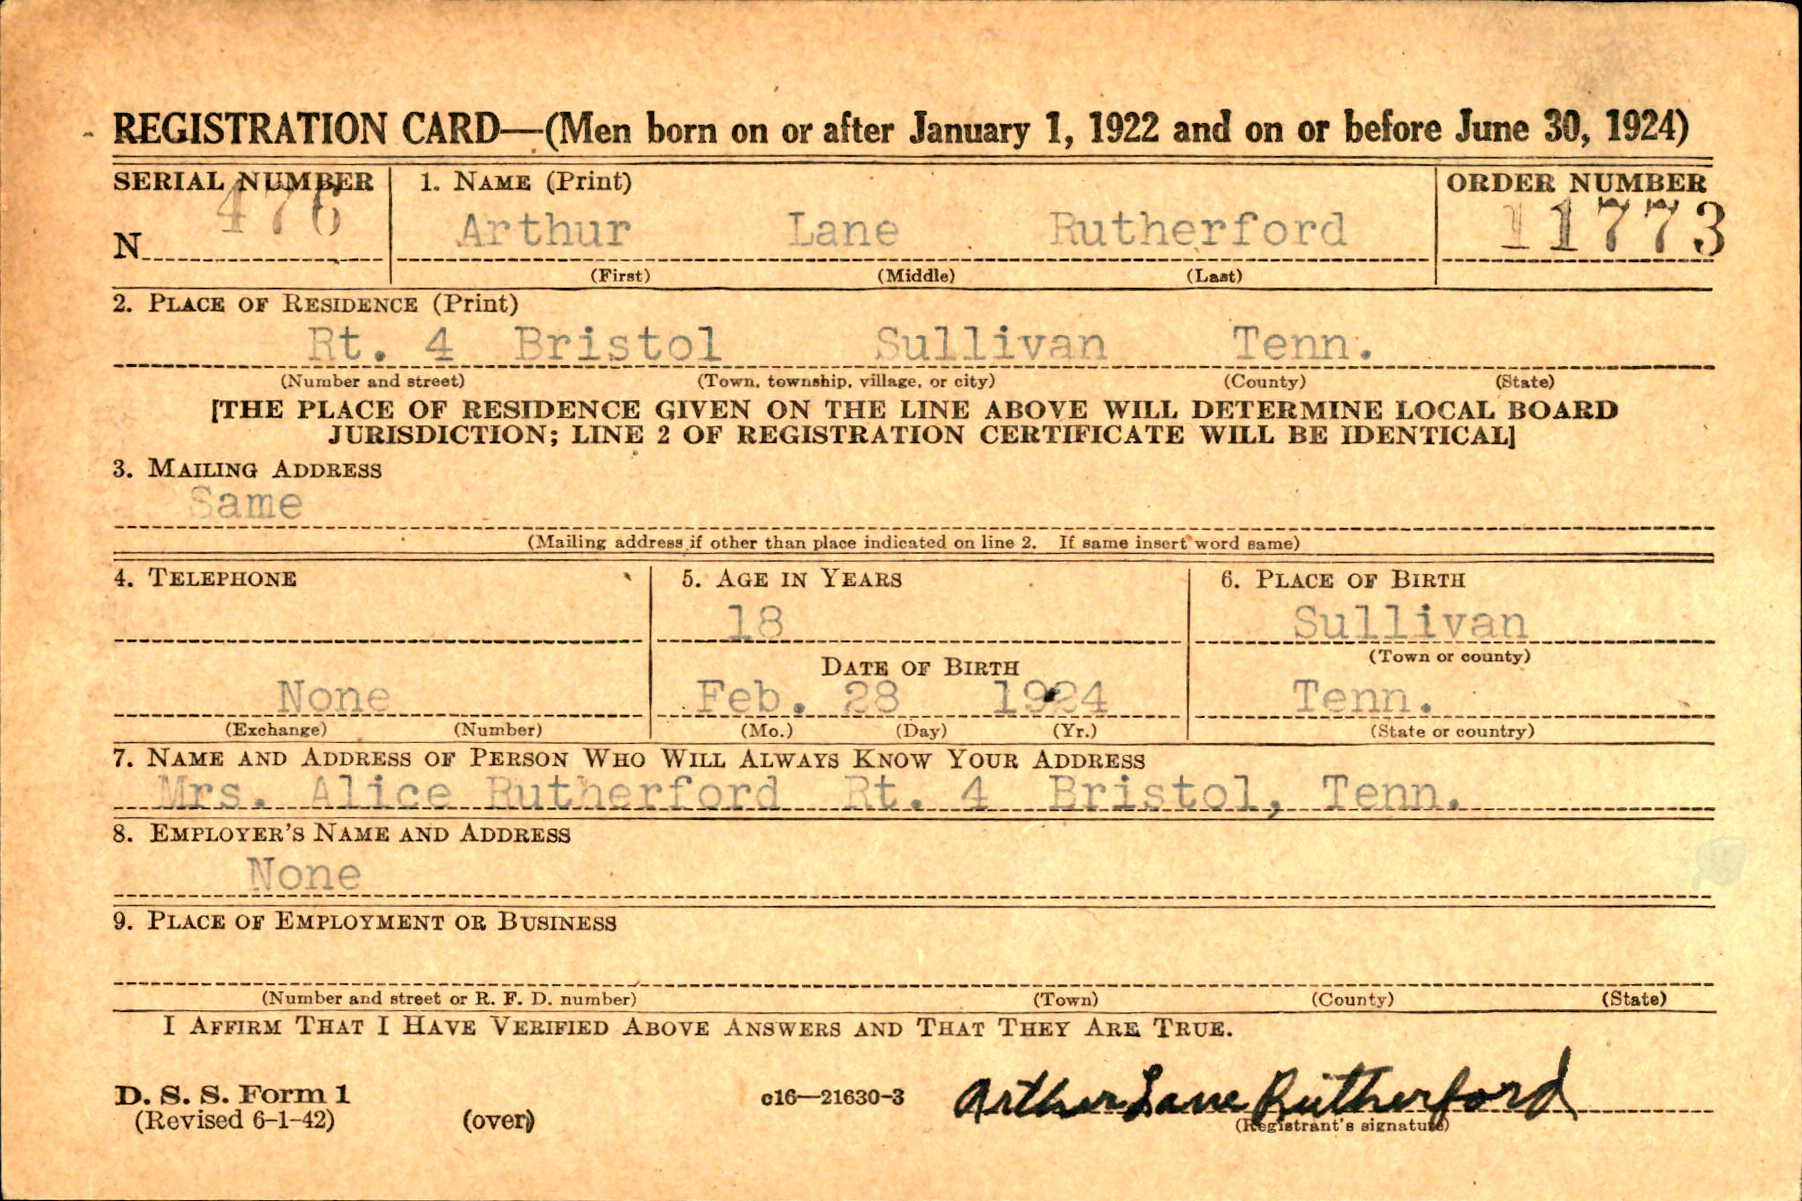 REGISTRATION CARD—(Men born on or after January 1, 1922 and on or before June 30, 1924)
SERIAL NUMBER 1. NAME (Print) ORDER NUMBER
N 476 Arthur Lane Rutherford 11773
(First) (Middle) (Last)
2. PLACE OF RESIDENCE (Print)
Rt. 4 Bristol Sullivan Tenn.
(Number and street) (Town, township, village, or city) (County) (State)
[THE PLACE OF RESIDENCE GIVEN ON THE LINE ABOVE WILL DETERMINE LOCAL BOARD
JURISDICTION; LINE 2 OF REGISTRATION CERTIFICATE WILL BE IDENTICAL]
3. MAILING ADDRESS
Same
(Mailing address if other than place indicated on line 2. If same insert word same)
4. TELEPHONE 5. AGE IN YEARS 6. PLACE OF BIRTH
18 Sullivan
DATE OF BIRTH (Town or county)
None Feb. 28 1924 Tenn.
(Exchange) (Number) (Mo.) (Day) (Yr.) (State or country)
7. NAME AND ADDRESS OF PERSON WHO WILL ALWAYS KNOW YOUR ADDRESS
Mrs. Alice Rutherford Rt. 4 Bristol, Tenn.
8. EMPLOYER'S NAME AND ADDRESS
None
9. PLACE OF EMPLOYMENT OR BUSINESS
(Number and street or R. F. D. number) (Town) (County) (State)
I AFFIRM THAT I HAVE VERIFIED ABOVE ANSWERS AND THAT THEY ARE TRUE.
D. S. S. Form 1 c16—21630-3 Arthur Lane Rutherford
(Revised 6-1-42) (over) (Registrant's signature)